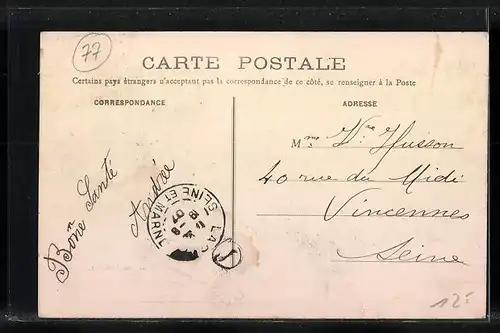 77
CARTE POSTALE
Certains pays étrangers n'acceptant pas la correspondance de ce côté, se renseigner à la Poste
CORRESPONDANCE
ADRESSE
Bonne Santé
Andrée
Mme Vve Husson
40 rue du Midi
Vincennes
Seine
SEINE ET MARNE
12